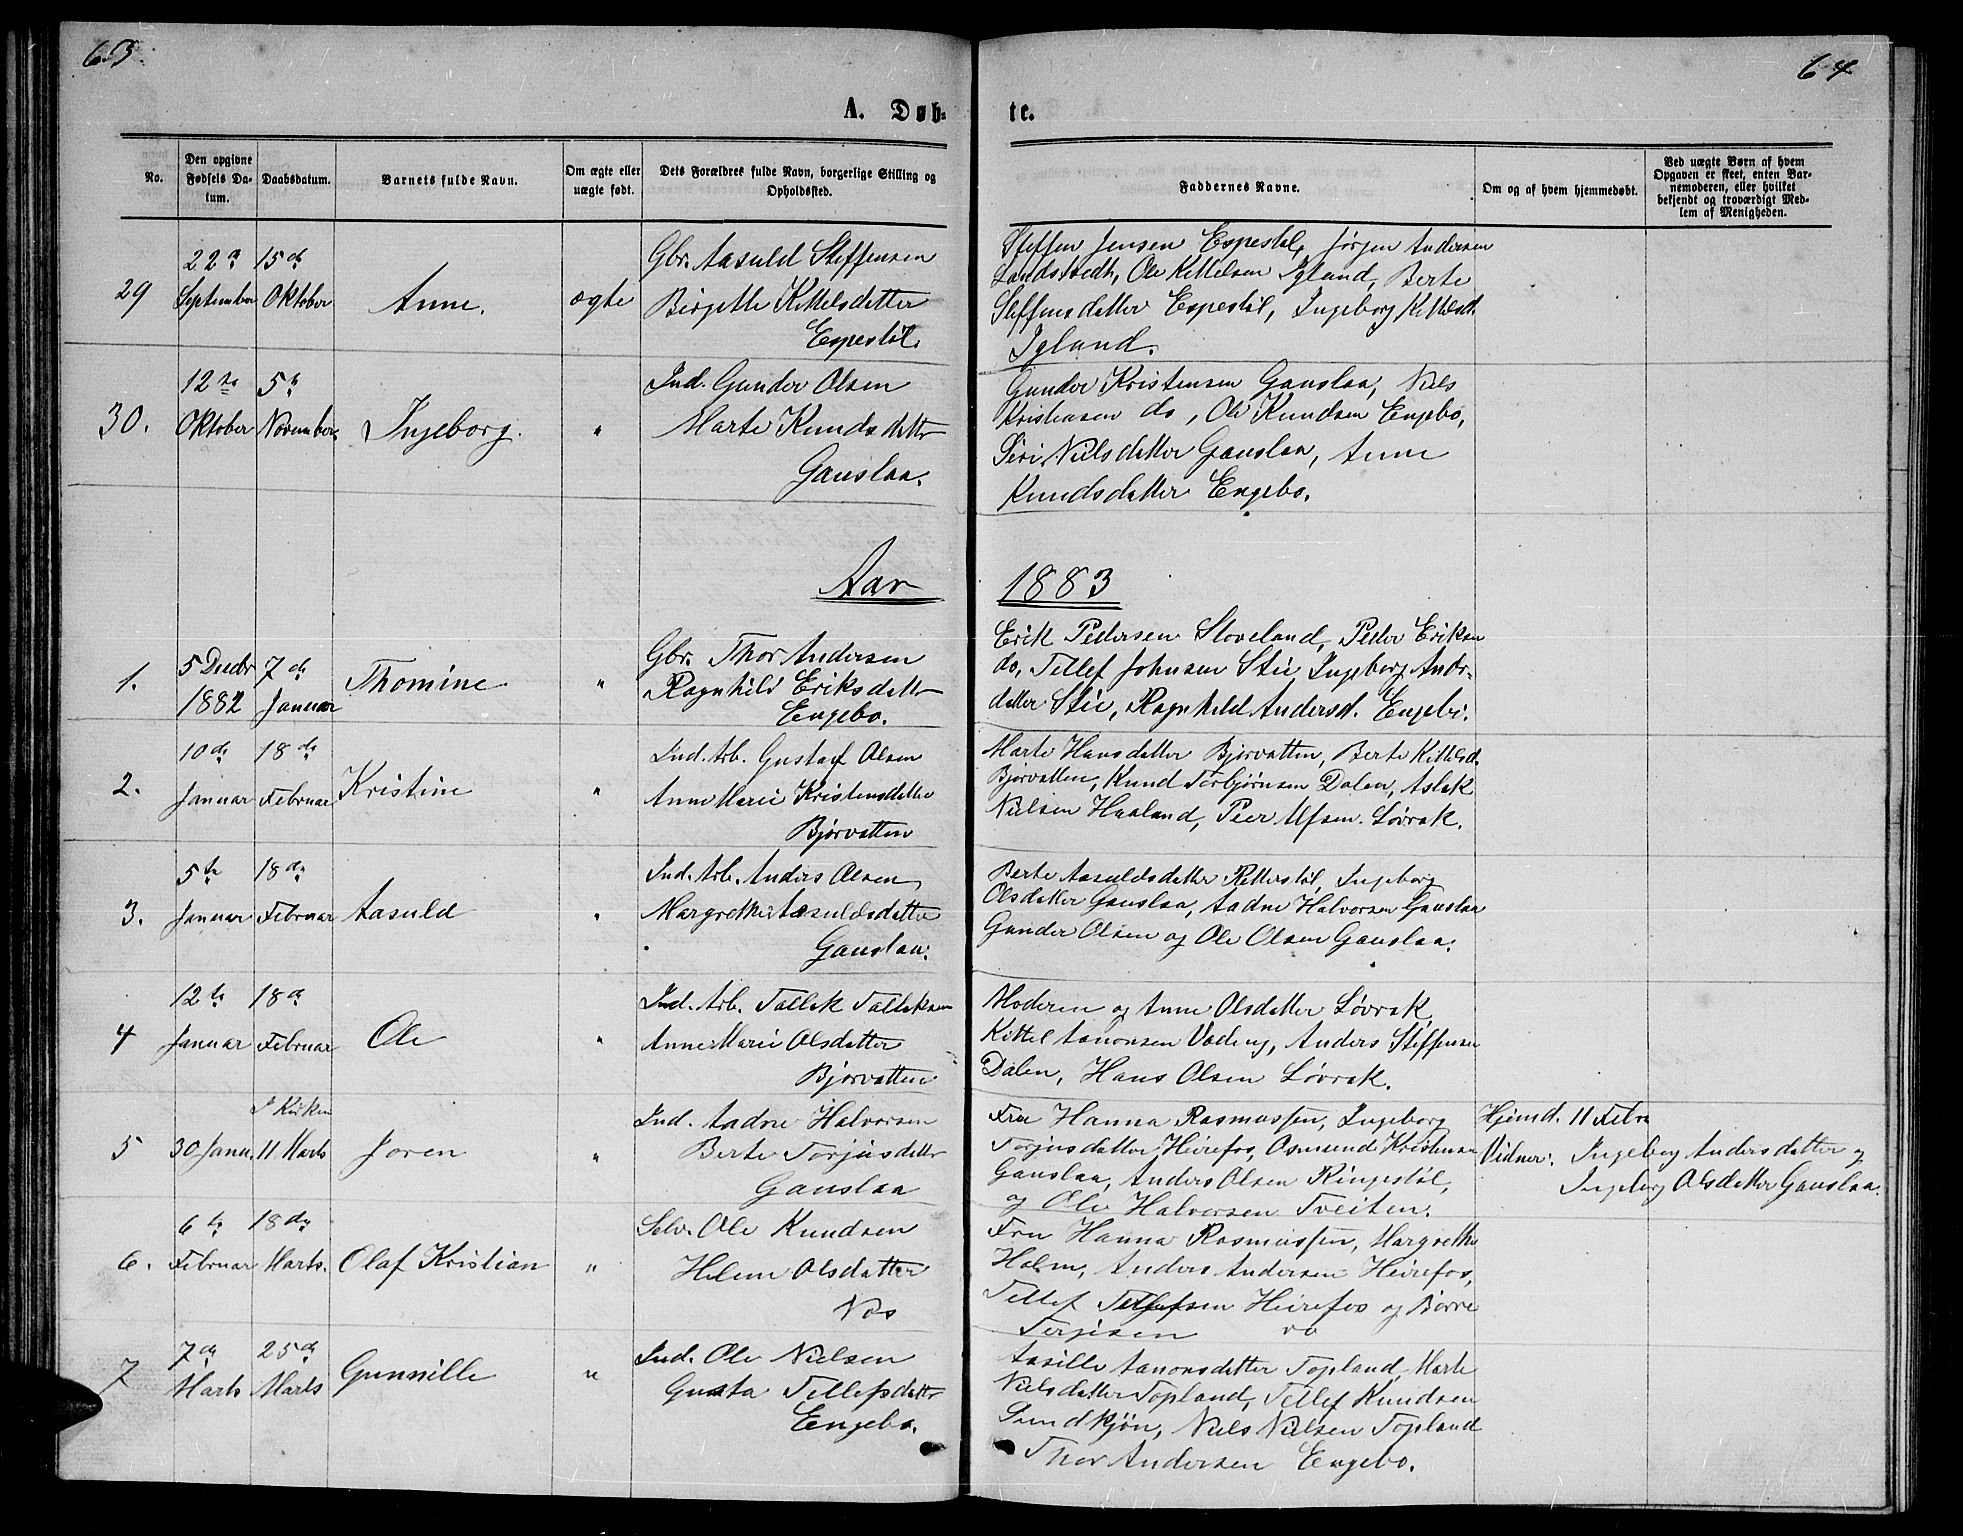 63.
64
A. Døb-
te.
No.
Den opgivne Fødsels Da-
tum.
Daabsdatum.
Barnets fulde Navn.
Om ægte eller
uægte født.
Dets Forældres fulde Navn, borgerlige Stilling og
Opholdssted.
Faddernes Navne.
Om og af hvem hjemmedøbt.
Ved uægte Børn af hvem
Opgaven er skeet, enten Bar-
nemoderen, eller hvilket
bekjendt og troværdigt Med-
lem af Menigheden.
29
22de September
15de Oktober
Anne.
ægte
Gbr. Aasuld Steffensen
Birgitte Kittelsdatter
Espestøl.
Steffen Jensen Espestøl, Jørgen Andersen
Landstvedt, Ole Kittelsen Igland, Berte
Steffensdatter Espestøl, Ingeborg Kittelsd.
Igland.
30.
12te Oktober
5te November
Ingeborg.
"
Ind. Gunder Olsen
Marte Knudsdatter
Gauslaa.
Gunder Kristensen Gauslaa, Niels
Kristensen do, Ole Knudsen Engebo,
Siri Nielsdatter Gauslaa, Anne
Knudsdatter Engebo.
Aar 1883
1.
5 Decbr 1882
7de Januar
Thomine
"
Gbr. Thor Andersen
Ragnhild Eriksdatter
Engebo.
Erik Pedersen Sloveland, Peder Eriksen
do, Tellef Johnsen Stie, Ingeborg Andr-
datter Stie, Ragnhild Andersd. Engebo.
2.
10de Januar
18de Februar
Kristine
"
Ind. Arb. Gustaf Olsen
Anne Marie Kristensdatter
Bjorvatten
Marte Hansdatter Bjorvatten, Berte Kittelsd.
Bjorvatten, Knud Torbjørnsen Dalen, Aslak
Nielsen Haaland, Peer Ulfsen Løvrak.
3.
5te Januar
18de Februar
Aasuld
"
Ind. Arb. Anders Olsen
Margrethe Aasuldsdatter
Gauslaa.
Berte Aasuldsdatter Retterstøl, Ingeborg
Olsdatter Gauslaa, Aadne Halvorsen Gauslaa
Gunder Olsen og Ole Olsen Gauslaa.
4
12te Januar
18de Februar
Ole
"
Ind. Arb. Tallak Tallaksen
Anne Marie Olsdatter
Bjorvatten
Moderen og Anne Olsdatter Løvrak,
Kittel Aanonsen Vadeng, Anders Steffensen
Dalen, Hans Olsen Løvrak.
5
30 Janu.
I Kirken
11 Marts
Joren
"
Ind. Aadne Halvorsen
Berte Torjusdatter
Gauslaa
Fru Hanna Rasmussen, Ingeborg
Torjusdatter Heirefos, Osmund Kristensen
Gauslaa, Anders Olsen Ringestøl,
og Ole Halvorsen Tveiten.
Hjemd. 11 Febr
Vidner: Ingeborg Andersdatter og
Ingeborg Olsdatter Gauslaa.
6.
6te Februar
18de Marts.
Olaf Kristian
"
Selv. Ole Knudsen
Helene Olsdatter
Næs
Fru Hanna Rasmussen, Margrethe
Holm, Anders Andersen Heirefos,
Tellef Tellefsen Heirefos og Børre
Terjesen do
7
7de Marts
25de Marts
Gunnille
"
Ind. Ole Nielsen
Gusta Tellefsdatter
Engebo.
Aasille Aanonsdatter Topland, Marte
Nielsdatter Topland, Tellef Knudsen
Sundtkjøn, Niels Nielsen Topland
Thor Andersen Engebo.